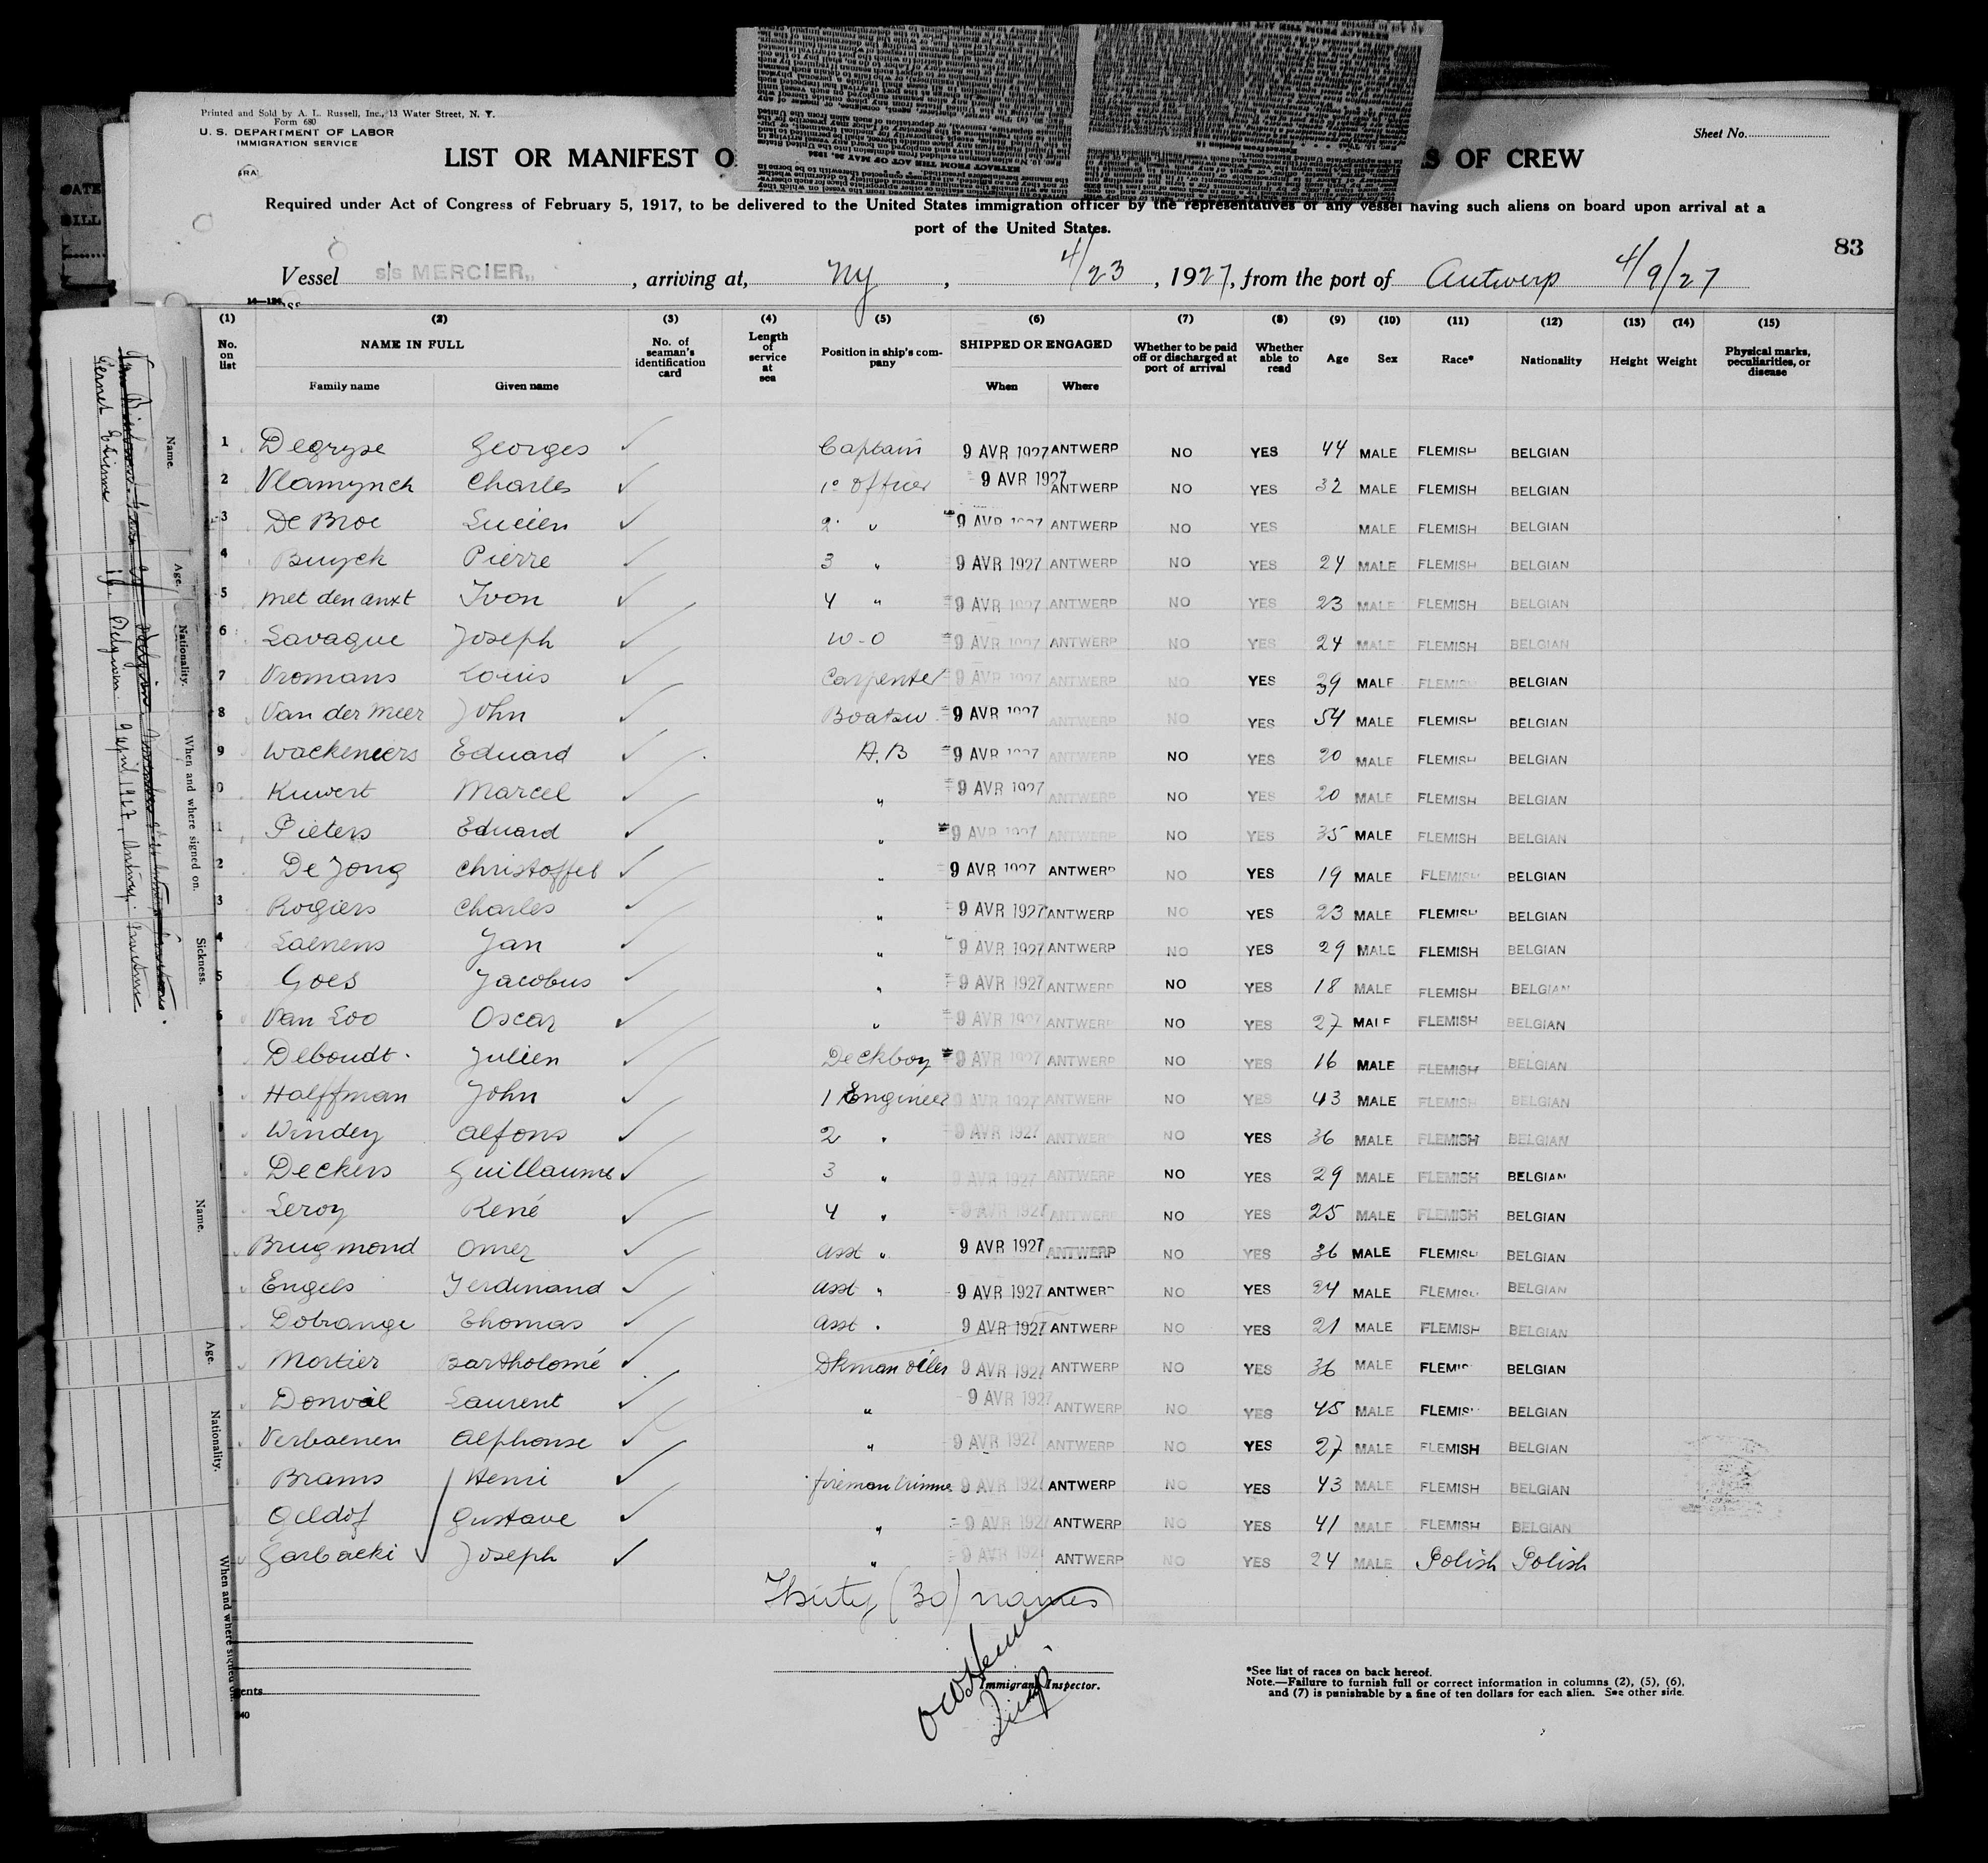 Printed and Sold by A. L. Russell, Inc., 13 Water Street, N. Y.
Form 680
U. S. DEPARTMENT OF LABOR
IMMIGRATION SERVICE
Sheet No.
LIST OR MANIFEST O S OF CREW
Required under Act of Congress of February 5, 1917, to be delivered to the United States immigration officer by the representatives of any vessel having such aliens on board upon arrival at a
port of the United States.
83
Vessel s/s MERCIER, arriving at, Ny, 4/23, 1927, from the port of Antwerp 4/9/27
(1) (2) (3) (4) (5) (6) (7) (8) (9) (10) (11) (12) (13) (14) (15)
No. on list NAME IN FULL Family name Given name No. of seaman's identification card Length of service at sea Position in ship's company SHIPPED OR ENGAGED When Where Whether to be paid off or discharged at port of arrival Whether able to read Age Sex Race* Nationality Height Weight Physical marks, peculiarities, or disease
1 Degryse Georges Captain 9 AVR 1927 ANTWERP NO YES 44 MALE FLEMISH BELGIAN
2 Vlamynck Charles 1° Officer 9 AVR 1927 ANTWERP NO YES 32 MALE FLEMISH BELGIAN
3 De Broe Lucien 2 " 9 AVR 1927 ANTWERP NO YES MALE FLEMISH BELGIAN
4 Buyck Pierre 3 " 9 AVR 1927 ANTWERP NO YES 24 MALE FLEMISH BELGIAN
5 Met den anxt Ivon 4 " 9 AVR 1927 ANTWERP NO YES 23 MALE FLEMISH BELGIAN
6 Lavaque Joseph W-O 9 AVR 1927 ANTWERP NO YES 24 MALE FLEMISH BELGIAN
7 Vromans Louis Carpenter 9 AVR 1927 ANTWERP NO YES 39 MALE FLEMISH BELGIAN
8 Van der Meer John Boatsw 9 AVR 1927 ANTWERP NO YES 54 MALE FLEMISH BELGIAN
9 Wackeniers Eduard A.B 9 AVR 1927 ANTWERP NO YES 20 MALE FLEMISH BELGIAN
0 Kuwert Marcel " 9 AVR 1927 ANTWERP NO YES 20 MALE FLEMISH BELGIAN
1 Pieters Eduard " 9 AVR 1927 ANTWERP NO YES 35 MALE FLEMISH BELGIAN
2 De Jong Christoffel " 9 AVR 1927 ANTWERP NO YES 19 MALE FLEMISH BELGIAN
3 Rogiers Charles " 9 AVR 1927 ANTWERP NO YES 23 MALE FLEMISH BELGIAN
4 Laenens Jan " 9 AVR 1927 ANTWERP NO YES 29 MALE FLEMISH BELGIAN
5 Goes Jacobus " 9 AVR 1927 ANTWERP NO YES 18 MALE FLEMISH BELGIAN
6 Van Loo Oscar " 9 AVR 1927 ANTWERP NO YES 27 MALE FLEMISH BELGIAN
7 Deboudt Julien Deckboy 9 AVR 1927 ANTWERP NO YES 16 MALE FLEMISH BELGIAN
Halffman John 1 Engineer 9 AVR 1927 ANTWERP NO YES 43 MALE FLEMISH BELGIAN
Windey Alfons 2 " 9 AVR 1927 ANTWERP NO YES 36 MALE FLEMISH BELGIAN
Deckers Guillaume 3 " 9 AVR 1927 ANTWERP NO YES 29 MALE FLEMISH BELGIAN
Leroy René 4 " 9 AVR 1927 ANTWERP NO YES 25 MALE FLEMISH BELGIAN
Brugmond Omer Asst " 9 AVR 1927 ANTWERP NO YES 36 MALE FLEMISH BELGIAN
Engels Ferdinand Asst " 9 AVR 1927 ANTWERP NO YES 24 MALE FLEMISH BELGIAN
Dobrange Thomas Asst " 9 AVR 1927 ANTWERP NO YES 21 MALE FLEMISH BELGIAN
Mortier Bartholomé Dkman oiler 9 AVR 1927 ANTWERP NO YES 36 MALE FLEMISH BELGIAN
Donval Laurent " 9 AVR 1927 ANTWERP NO YES 45 MALE FLEMISH BELGIAN
Verbaenen Alphonse " 9 AVR 1927 ANTWERP NO YES 27 MALE FLEMISH BELGIAN
Brams Henri fireman trimmer 9 AVR 1927 ANTWERP NO YES 43 MALE FLEMISH BELGIAN
Geldof Gustave " 9 AVR 1927 ANTWERP NO YES 41 MALE FLEMISH BELGIAN
Garbacki Joseph " 9 AVR 1927 ANTWERP NO YES 24 MALE Polish Polish
Thirty (30) names
Immigrant Inspector.
*See list of races on back hereof.
Note.—Failure to furnish full or correct information in columns (2), (5), (6),
and (7) is punishable by a fine of ten dollars for each alien. See other side.
Name. Age. Nationality. When and where signed on. Sickness.
Pernet Etienne 19 Belgian 9 April 1927, Antwerp
Name. Age. Nationality. When and where signed on.